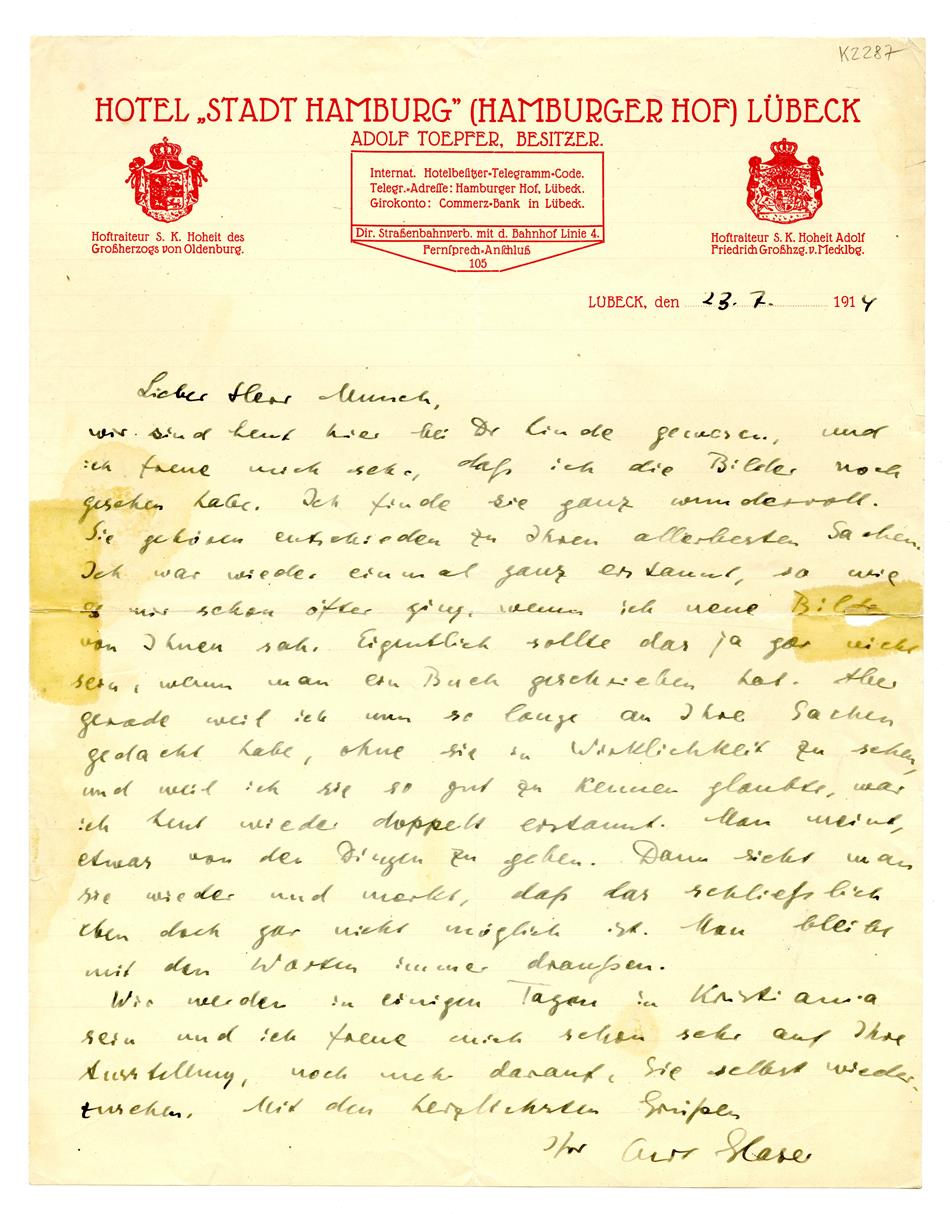 K2287
HOTEL „STADT HAMBURG” (HAMBURGER HOF) LÜBECK
ADOLF TOEPFER, BESITZER.
Internat. Hotelbesitzer-Telegramm-Code.
Telegr.-Adresse: Hamburger Hof, Lübeck.
Girokonto: Commerz-Bank in Lübeck.
Dir. Straßenbahnverb. mit d. Bahnhof Linie 4.
Fernsprech-Anschluß
105
Hoftraiteur S. K. Hoheit des
Großherzogs von Oldenburg.
Hoftraiteur S. K. Hoheit Adolf
Friedrich Großhzg. v. Mecklbg.
LÜBECK, den 23. 7. 1914
Lieber Herr Munch,
wir sind heut hier bei Dr Linde gewesen, und
ich freue mich sehr, daß ich die Bilder noch
gesehen habe. Ich finde sie ganz wundervoll.
Sie gehören entschieden zu Ihren allerbesten Sachen.
Ich war wieder einmal ganz erstaunt, so wie
es mir schon öfter ging, wenn ich neue Bilder
von Ihnen sah. Eigentlich sollte das ja gar nicht
sein, wenn man ein Buch geschrieben hat. Aber
gerade weil ich nun so lange an Ihre Sachen
gedacht habe, ohne sie in Wirklichkeit zu sehen,
und weil ich sie so gut zu kennen glaubte, war
ich heut wieder doppelt erstaunt. Man meint,
etwas von den Dingen zu geben. Dann sieht man
sie wieder und merkt, daß das schließlich
eben doch gar nicht möglich ist. Man bleibt
mit den Worten immer draußen.
Wir werden in einigen Tagen in Kristiania
sein und ich freue mich schon sehr auf Ihre
Ausstellung, noch mehr darauf, Sie selbst wieder-
zusehen. Mit den herzlichsten Grüßen
Ihr Curt Glaser